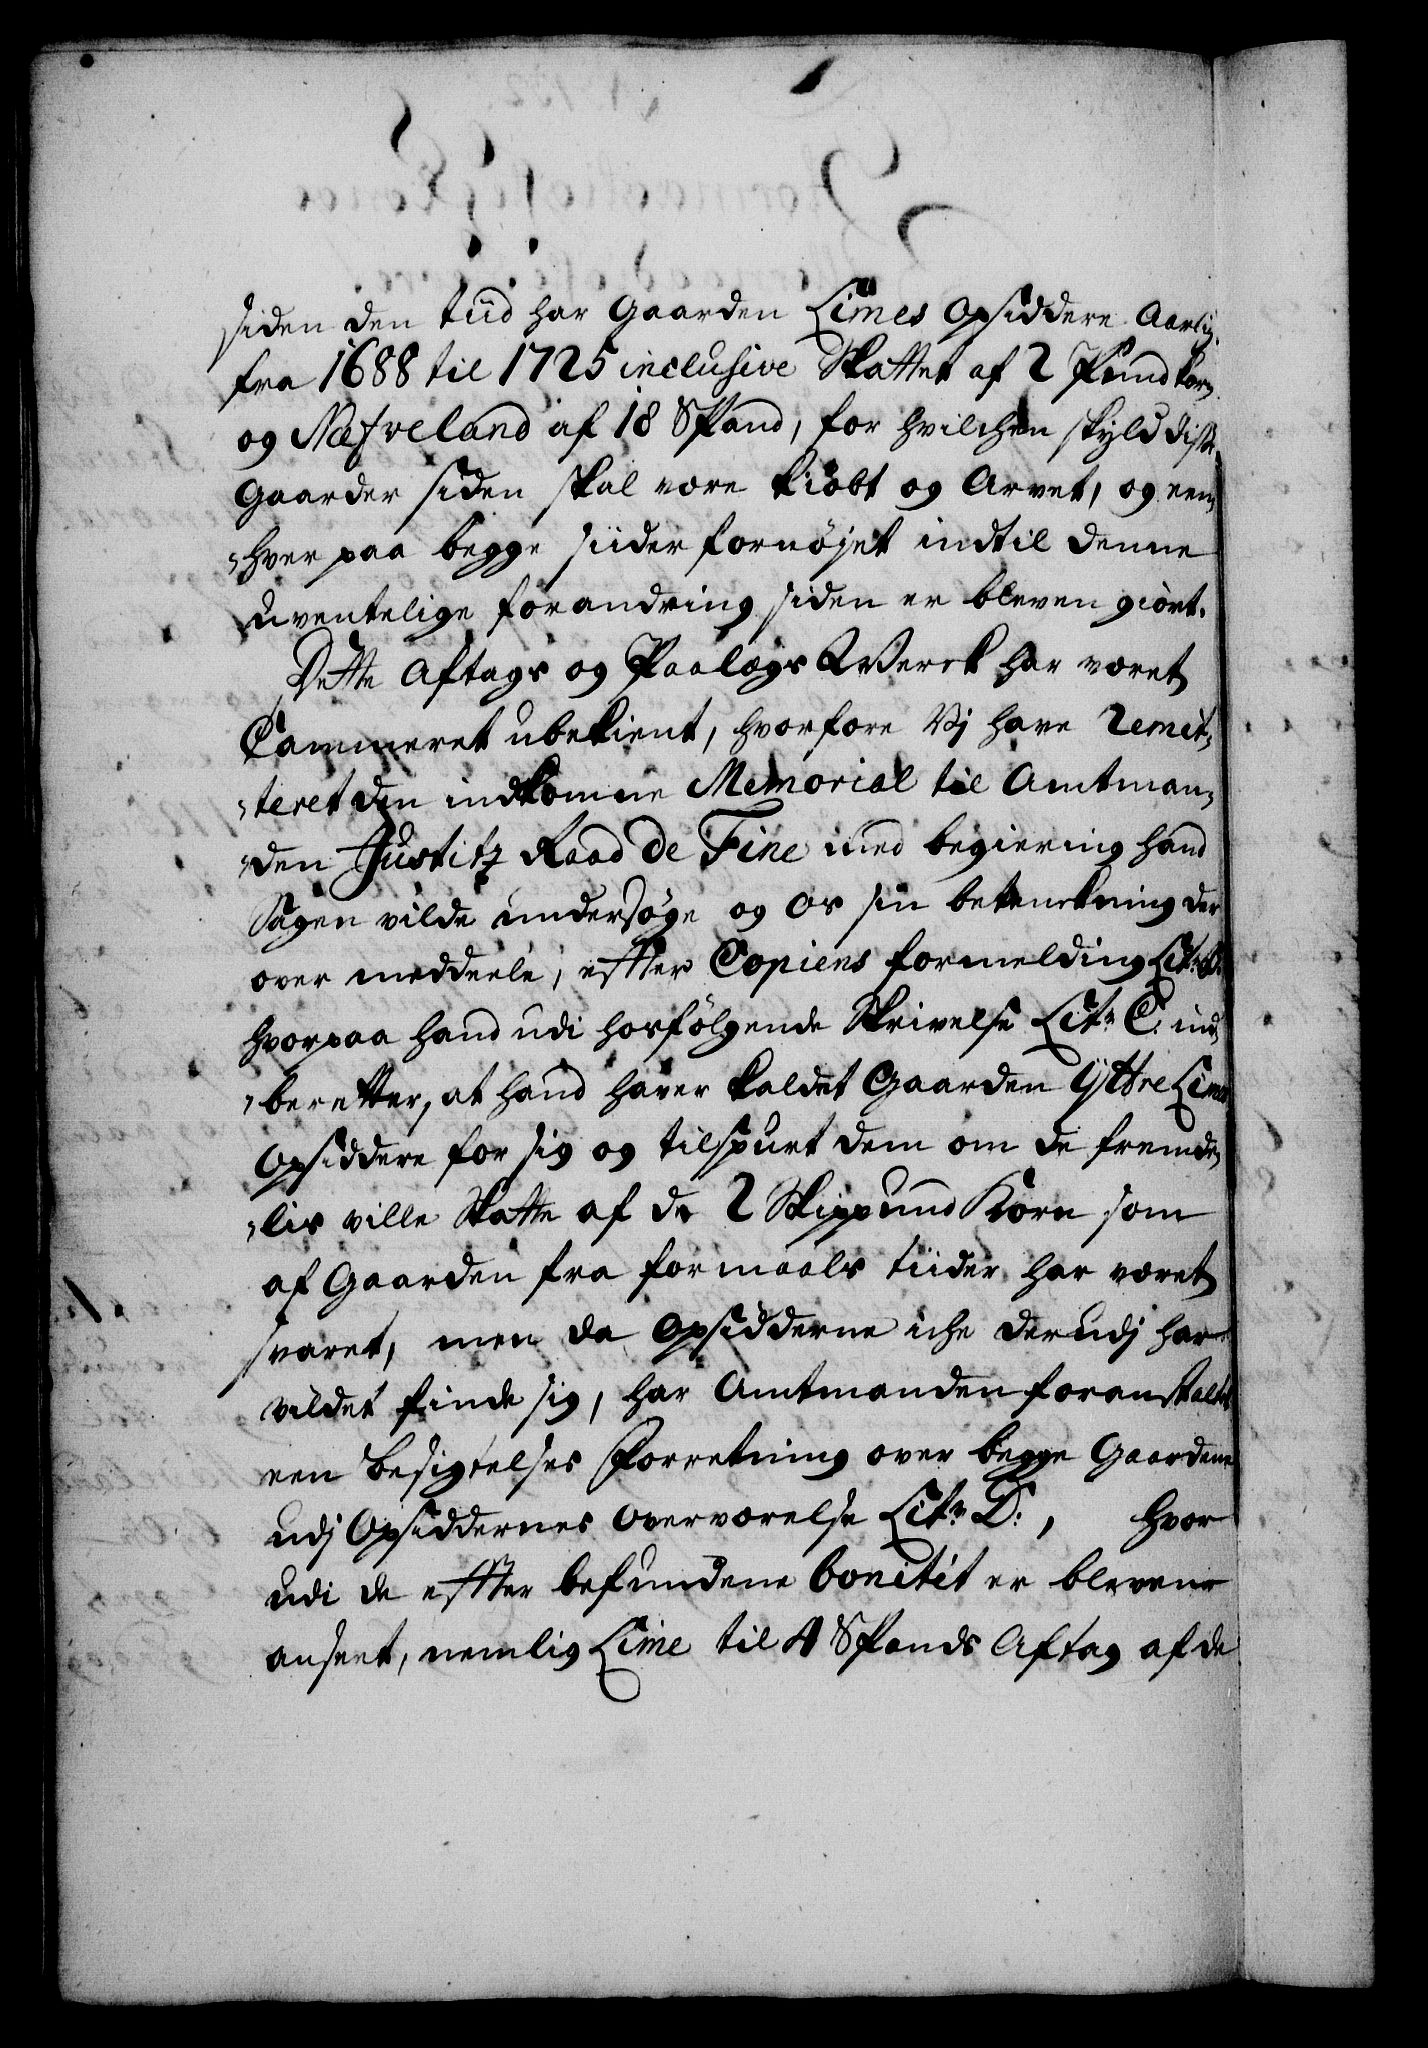 siden den tiid har Gaarden Limes Opsiddere Aarlig
fra 1688 til 1725 inclusive Skattet af 2 Pund korn
og Næfveland af 18 Spand, for hvilchen skyld disse
Gaarder siden skal være kiöbt og Arvet, og een„
„hver paa begge siider fornøjet indtil denne
uventelige forandring siden er bleven giört.
Dette Aftags og Paalægs Werck har været
Cammeret ubekient, hvorfore Vj have Remit„
„teret den indkomne Memorial til Amtman„
„den Justitz Raad de Fine med begiering hand
Sagen vilde undersøge og os sin betenkning der
over meddeele, effter Copiens formelding Litr: B:
hvorpaa hand udi hosfölgende Skrivelse Litr C: ind„
„beretter, at hand haver kaldet Gaarden Yttre Lime
Opsiddere for sig og tilspurt dem om de fremde„
„lis ville Skatte af de 2 Skippund Korn som
af Gaarden fra formaals tiider har været
svaret, men da Opsidderne iche derudj har
vildet finde sig, har Amtmanden foranstaltet
een Besigtelses Forretning over begge Gaardene
udj Opsiddernes Overværelse Litr D:, hvor
udi de effter befundene bonitet er blevene
anseet, nemlig Lime til 4 Spands Aftag af de